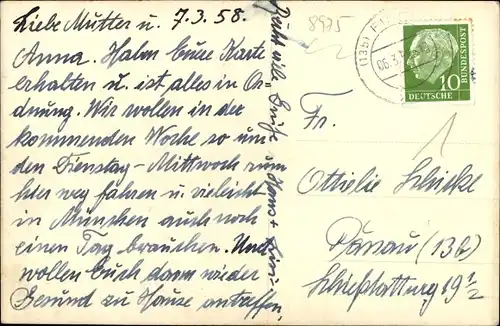 Liebe Mutter u. 7.3.58.
Anna. Habn Eure Karte
erhalten u. ist alles in Or
dnung. Wir wollen in der
kommenden Woche so um
den Dienstag - Mittwoch rum
hier weg fahren u. vieleicht
in München auch noch
einen Tag brauchen. Und
wollen Euch dann wieder
Gesund zu Hause antreffen,
Recht viele Grüße Hans +
8975
(13b)
06.3.
10
DEUTSCHE
BUNDESPOST
Fr.
Ottilie Schicke
Passau (13b)
Schießstattweg 19 1/2